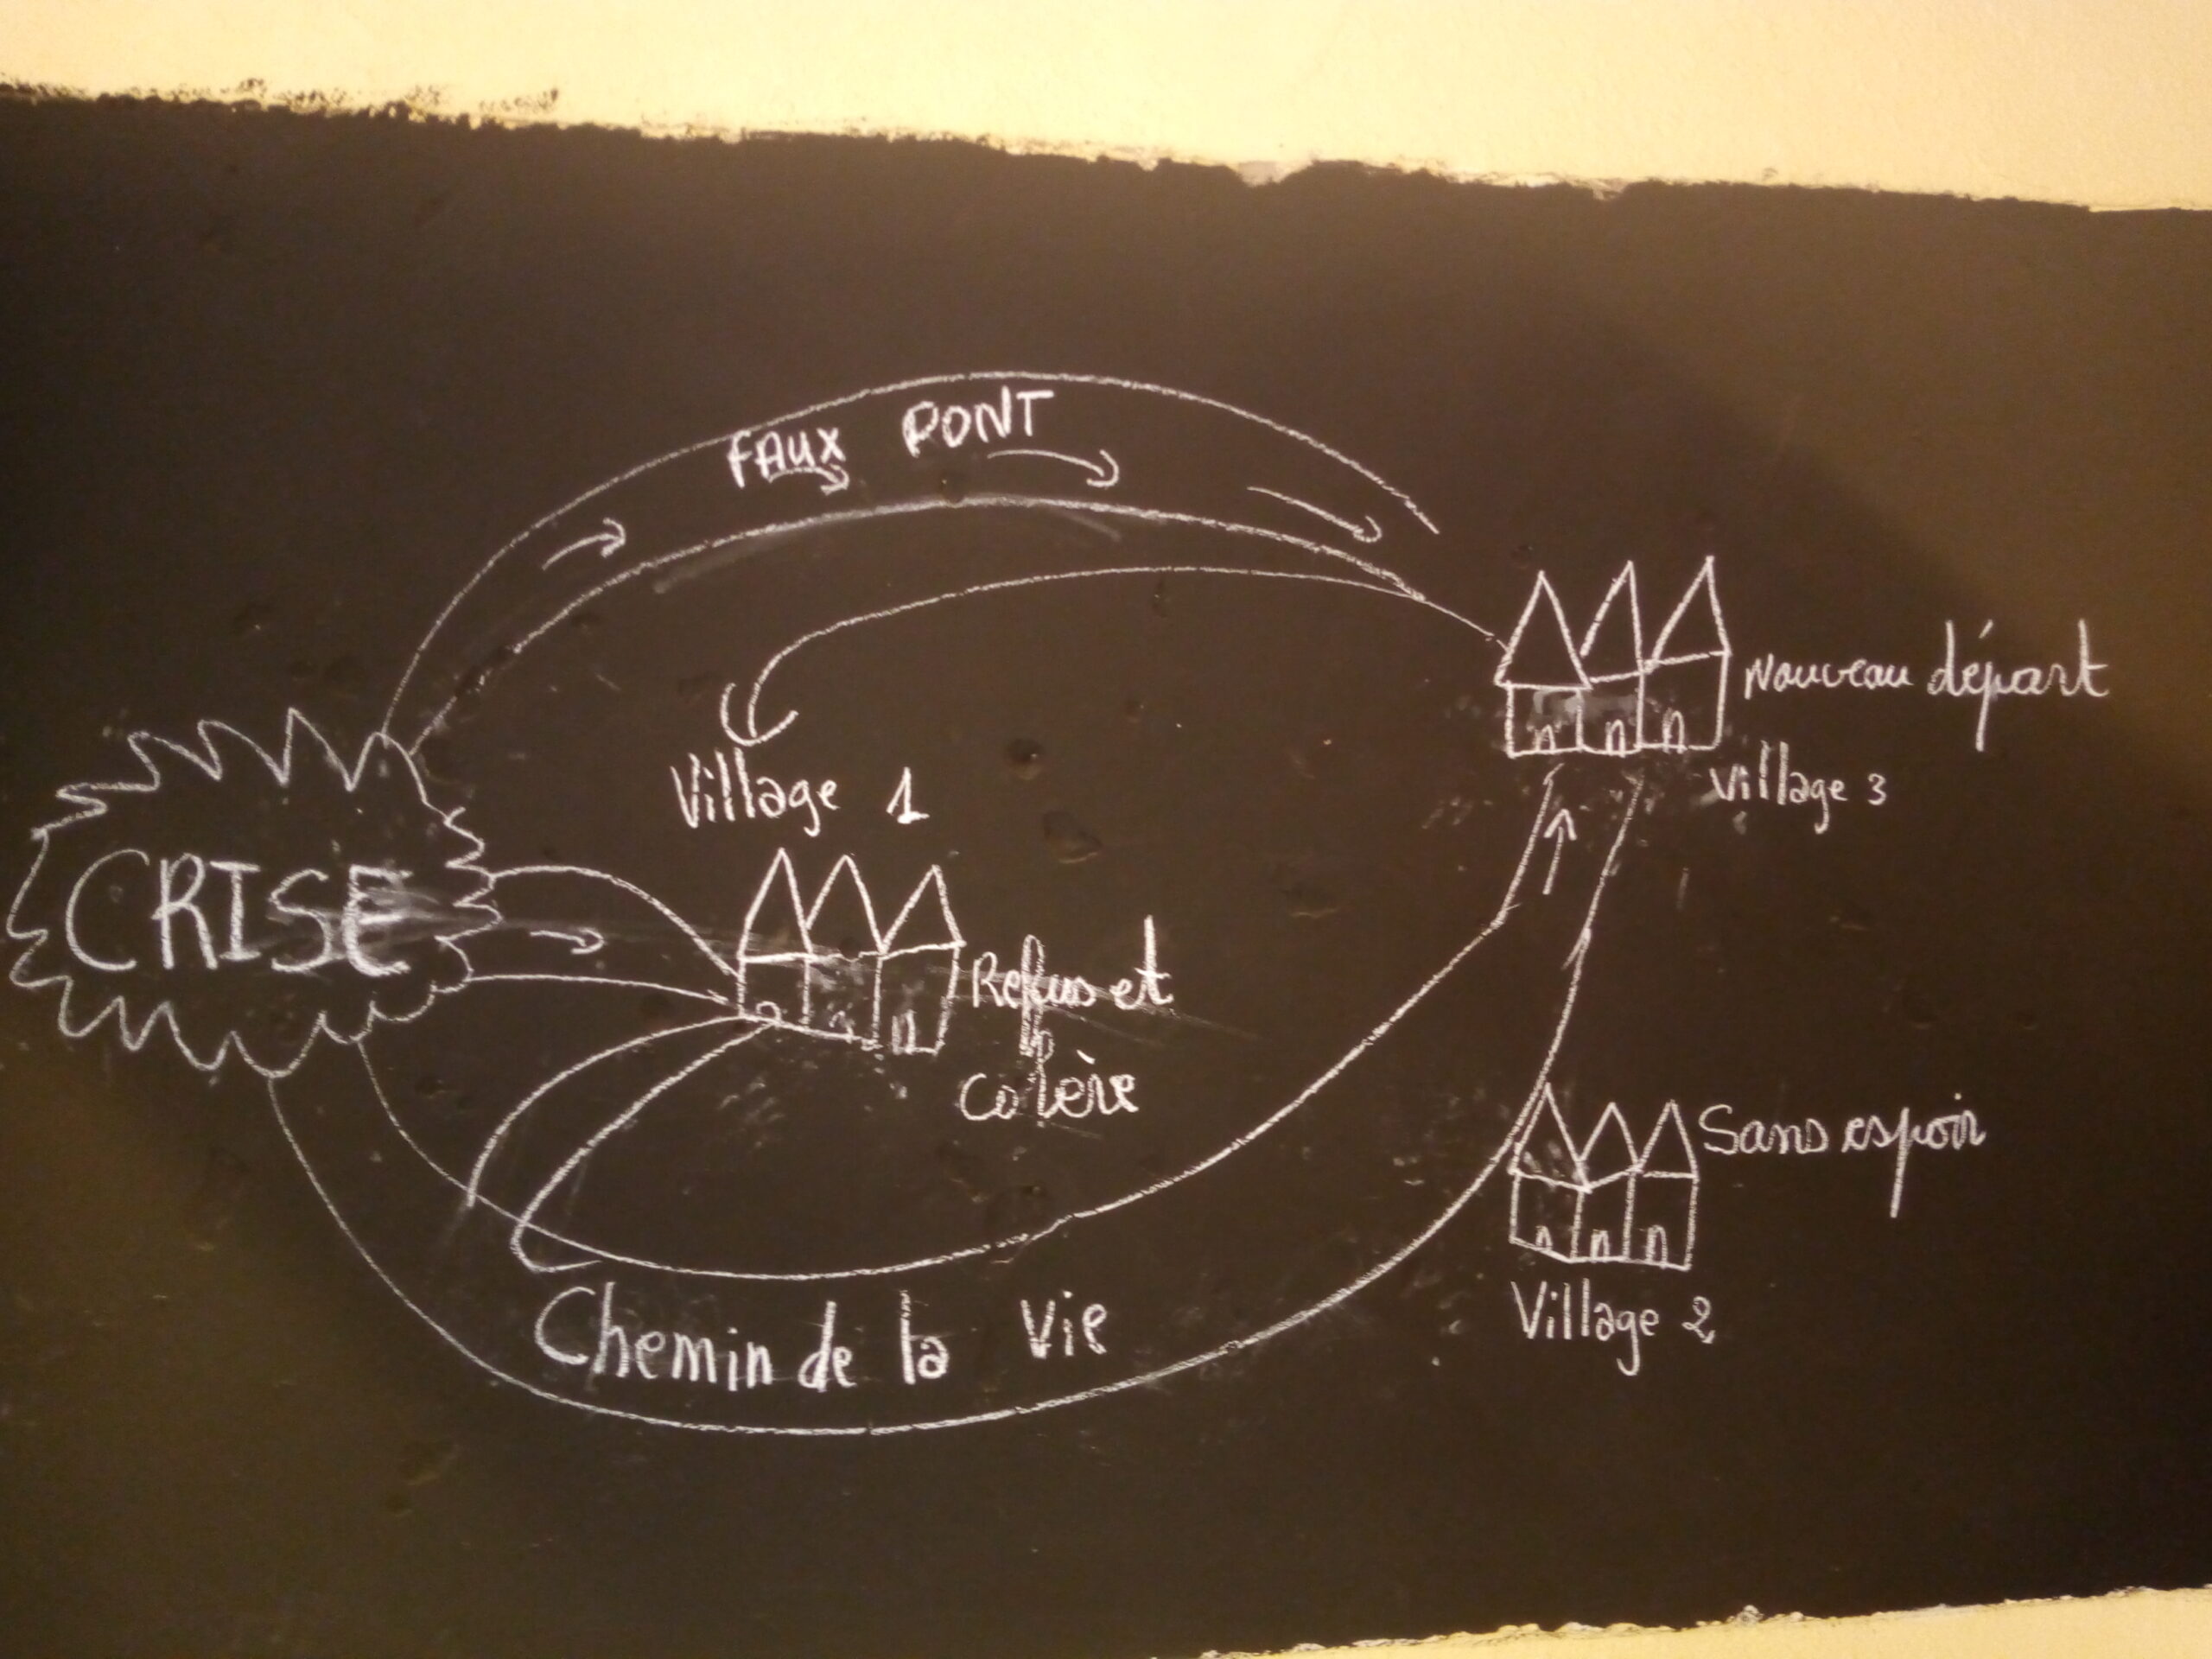 FAUX PONT
Nouveau départ
Village 3
Village 1
CRISE
Refus et
colère
Sans espoir
Village 2
Chemin de la Vie